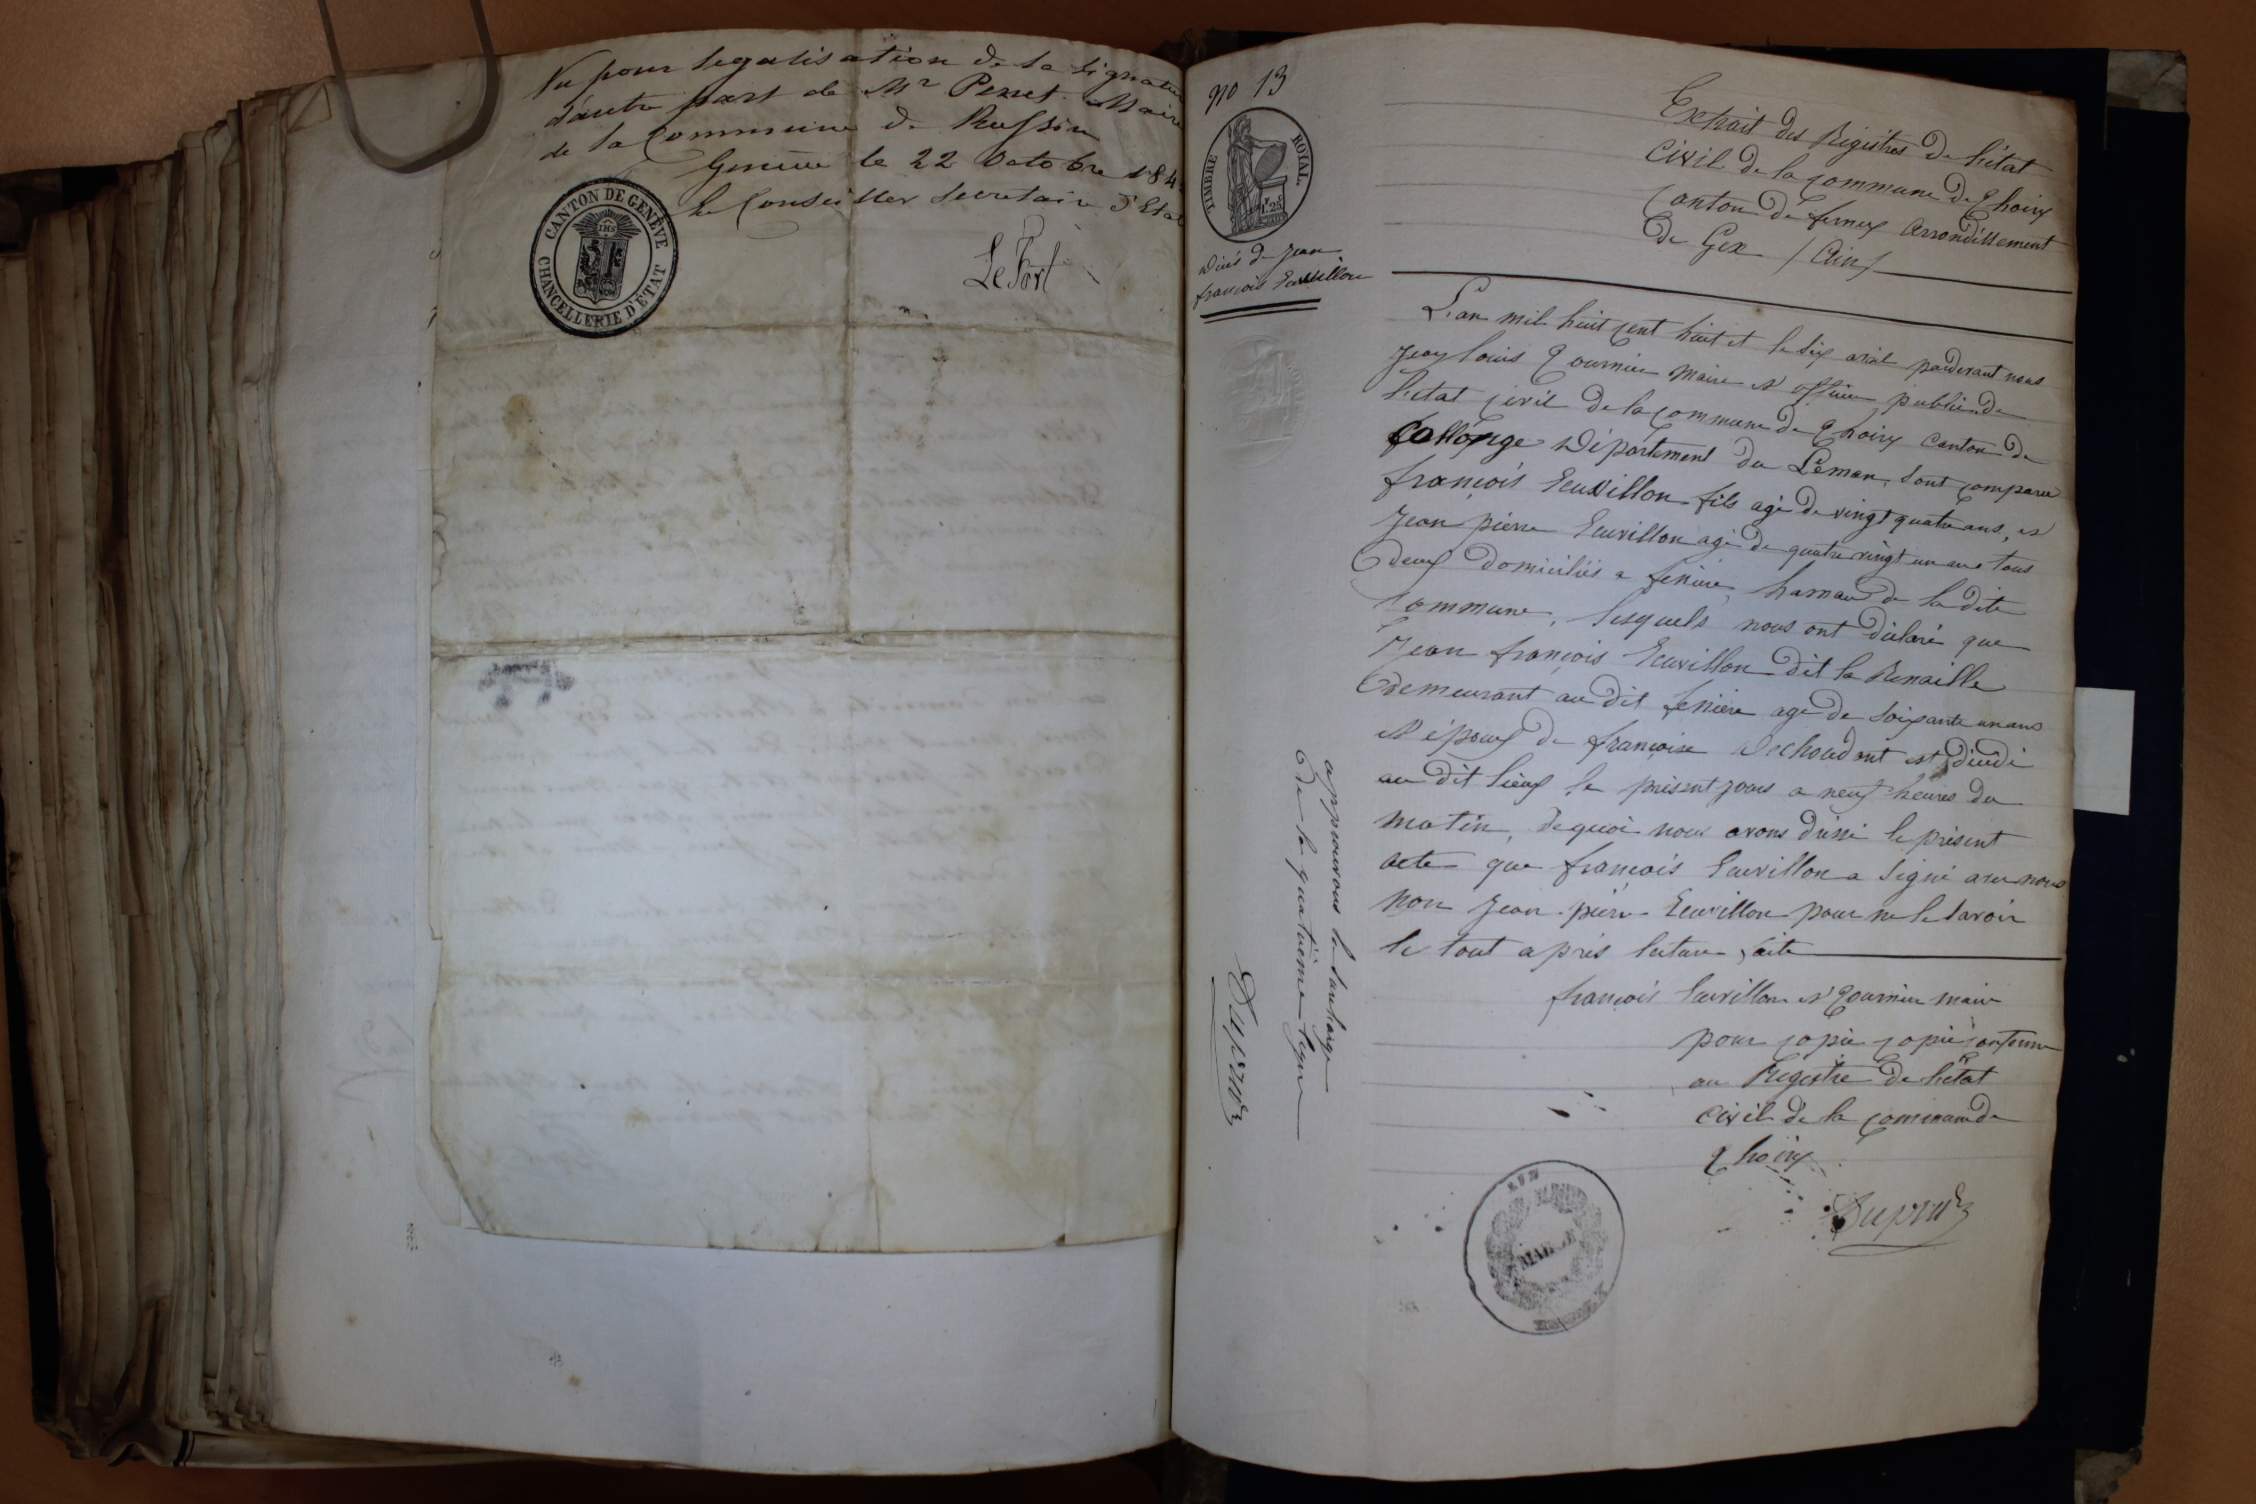 Vu pour legalisation de la signature
d'autre part de Mr Penet Maire
de la Commune de Russin
Genève le 22 Octobre 184
le Conseiller Secretaire d'Etat
CANTON DE GENÈVE
CHANCELLERIE D'ETAT
IHS
Le Fort
no 13
TIMBRE ROYAL
1.25
Décès de Jean
françois Ecuvillon
Extrait des Régistres de l'état
Civil de la commune de Thoiry
Canton de ferney arrondissement
de Gex / Ain /
L'an mil huit cent huit et le six avril pardevant nous
Jean louis Tournier maire et officier public de
l'etat civil de la commune de Thoiry canton de
Collonge Département du Léman, sont comparu
françois Ecuvillon fils agé de vingt quatre ans, et
Jean pierre Ecuvillon agé de quatre vingt un ans tous
deux domiciliés a feniere, hamau de la dite
commune, lesquels nous ont déclaré que
Jean françois Ecuvillon dit la Renaille
demeurant au dit feniere agé de soixante un ans
et époux de françoise Dechoudent est décédé
au dit lieux le présent jours a neuf heures du
matin, de quoi nous avons dressé le présent
acte que françois Ecuvillon a signé avec nous
non Jean pierre Ecuvillon pour ne le savoir
le tout après lecture faite
françois Ecuvillon et Tournier maire
pour copie copié conforme
au Régistre de l'état
civil de la commune de
Thoiry
Dupraz
approuvons la surcharge
de la quatrième ligne
Dupraz
AIN
MAIRIE